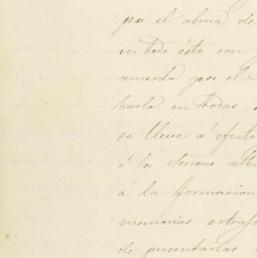 por el alma de
en todo éste con
acuerdo por el
barlo en todas
se lleve á efecto
á los Señores alb
á la formacion
memorias
de presentarlas